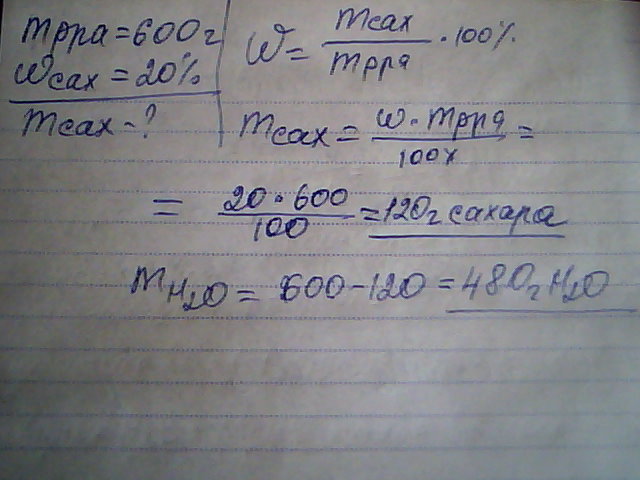 mрра = 600г
Wсах = 20%
mсах - ?
W = mсах / mрра · 100%
mсах = w · mрра / 100% =
= 20 · 600 / 100 = 120г сахара
mH2O = 600 - 120 = 480г H2O